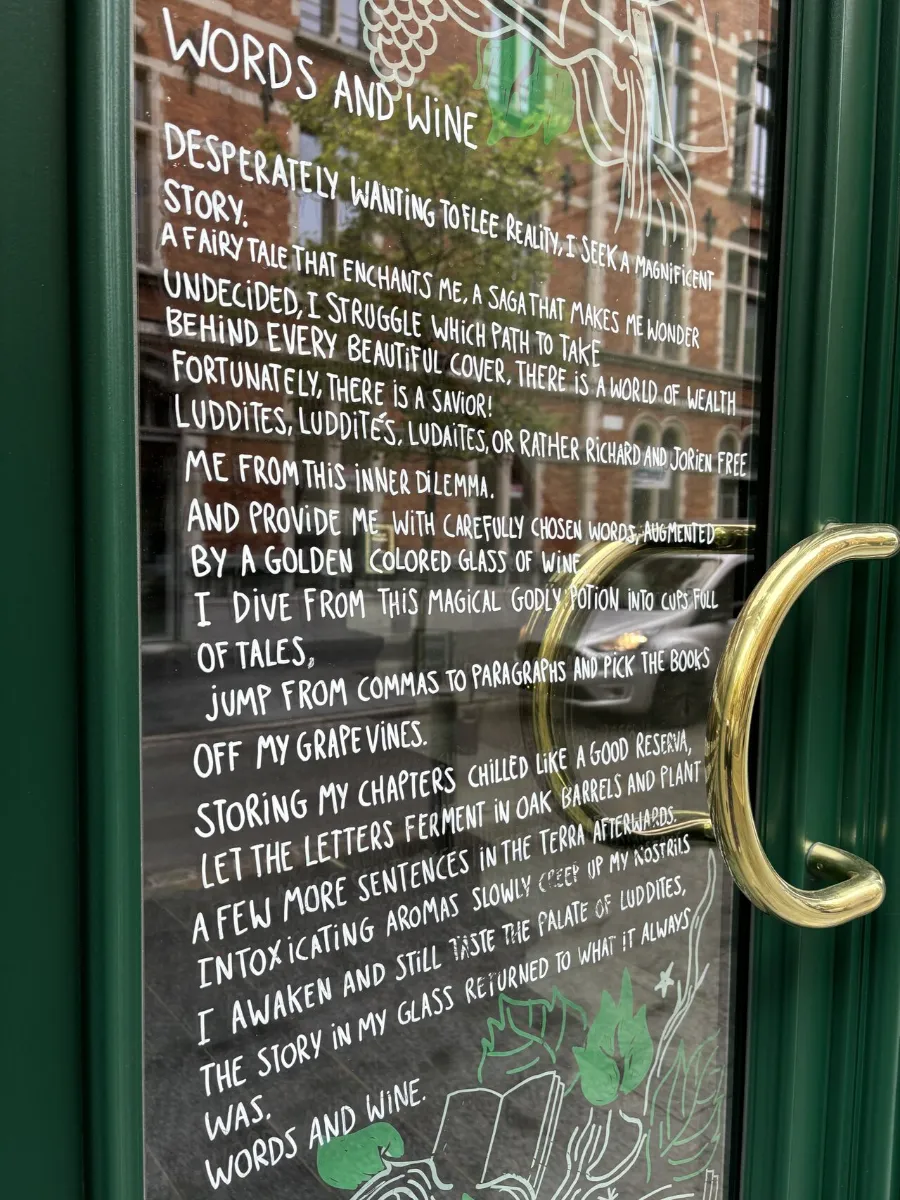 WORDS AND WINE
DESPERATELY WANTING TO FLEE REALITY, I SEEK A MAGNIFICENT
STORY.
A FAIRY TALE THAT ENCHANTS ME, A SAGA THAT MAKES ME WONDER
UNDECIDED, I STRUGGLE WHICH PATH TO TAKE
BEHIND EVERY BEAUTIFUL COVER, THERE IS A WORLD OF WEALTH
FORTUNATELY, THERE IS A SAVIOR!
LUDDITES, LUDDITÉS, LUDAITES, OR RATHER RICHARD AND JORIEN FREE
ME FROM THIS INNER DILEMMA.
AND PROVIDE ME WITH CAREFULLY CHOSEN WORDS, AUGMENTED
BY A GOLDEN COLORED GLASS OF WINE
I DIVE FROM THIS MAGICAL GODLY POTION INTO CUPS FULL
OF TALES,
JUMP FROM COMMAS TO PARAGRAPHS AND PICK THE BOOKS
OFF MY GRAPEVINES.
STORING MY CHAPTERS CHILLED LIKE A GOOD RESERVA,
LET THE LETTERS FERMENT IN OAK BARRELS AND PLANT
A FEW MORE SENTENCES IN THE TERRA AFTERWARDS.
INTOXICATING AROMAS SLOWLY CREEP UP MY NOSTRILS
I AWAKEN AND STILL TASTE THE PALATE OF LUDDITES,
THE STORY IN MY GLASS RETURNED TO WHAT IT ALWAYS
WAS.
WORDS AND WINE.